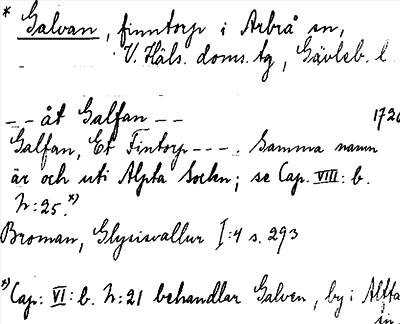 * Galvan, finntorp i Arbrå sn,
V. Häls. doms.tg, Gävleb. l
-- åt Galfan -- 1720
Galfan, Et Fintorp ---. Samma namn
är och uti Alpta Sockn; se Cap. VIII: b.
N: 25.*)
Broman, Glysisvallur I:4 s. 293
*) Cap: VI: b. N: 21 behandlar Galven, by i Alfta
sn.